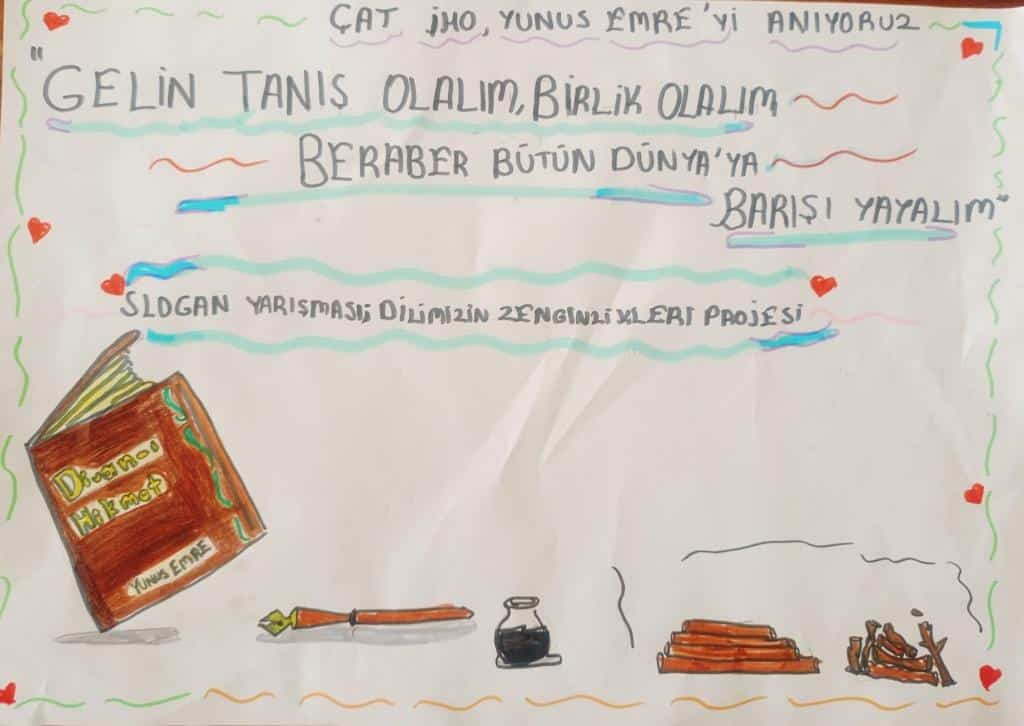 ÇAT İHO, YUNUS EMRE'Yİ ANIYORUZ
"GELİN TANIŞ OLALIM, BİRLİK OLALIM
BERABER BÜTÜN DÜNYA'YA
BARIŞI YAYALIM"
SLOGAN YARIŞMASI; DİLİMİZİN ZENGİNLİKLERİ PROJESİ
Divan-ı
Hikmet
YUNUS EMRE